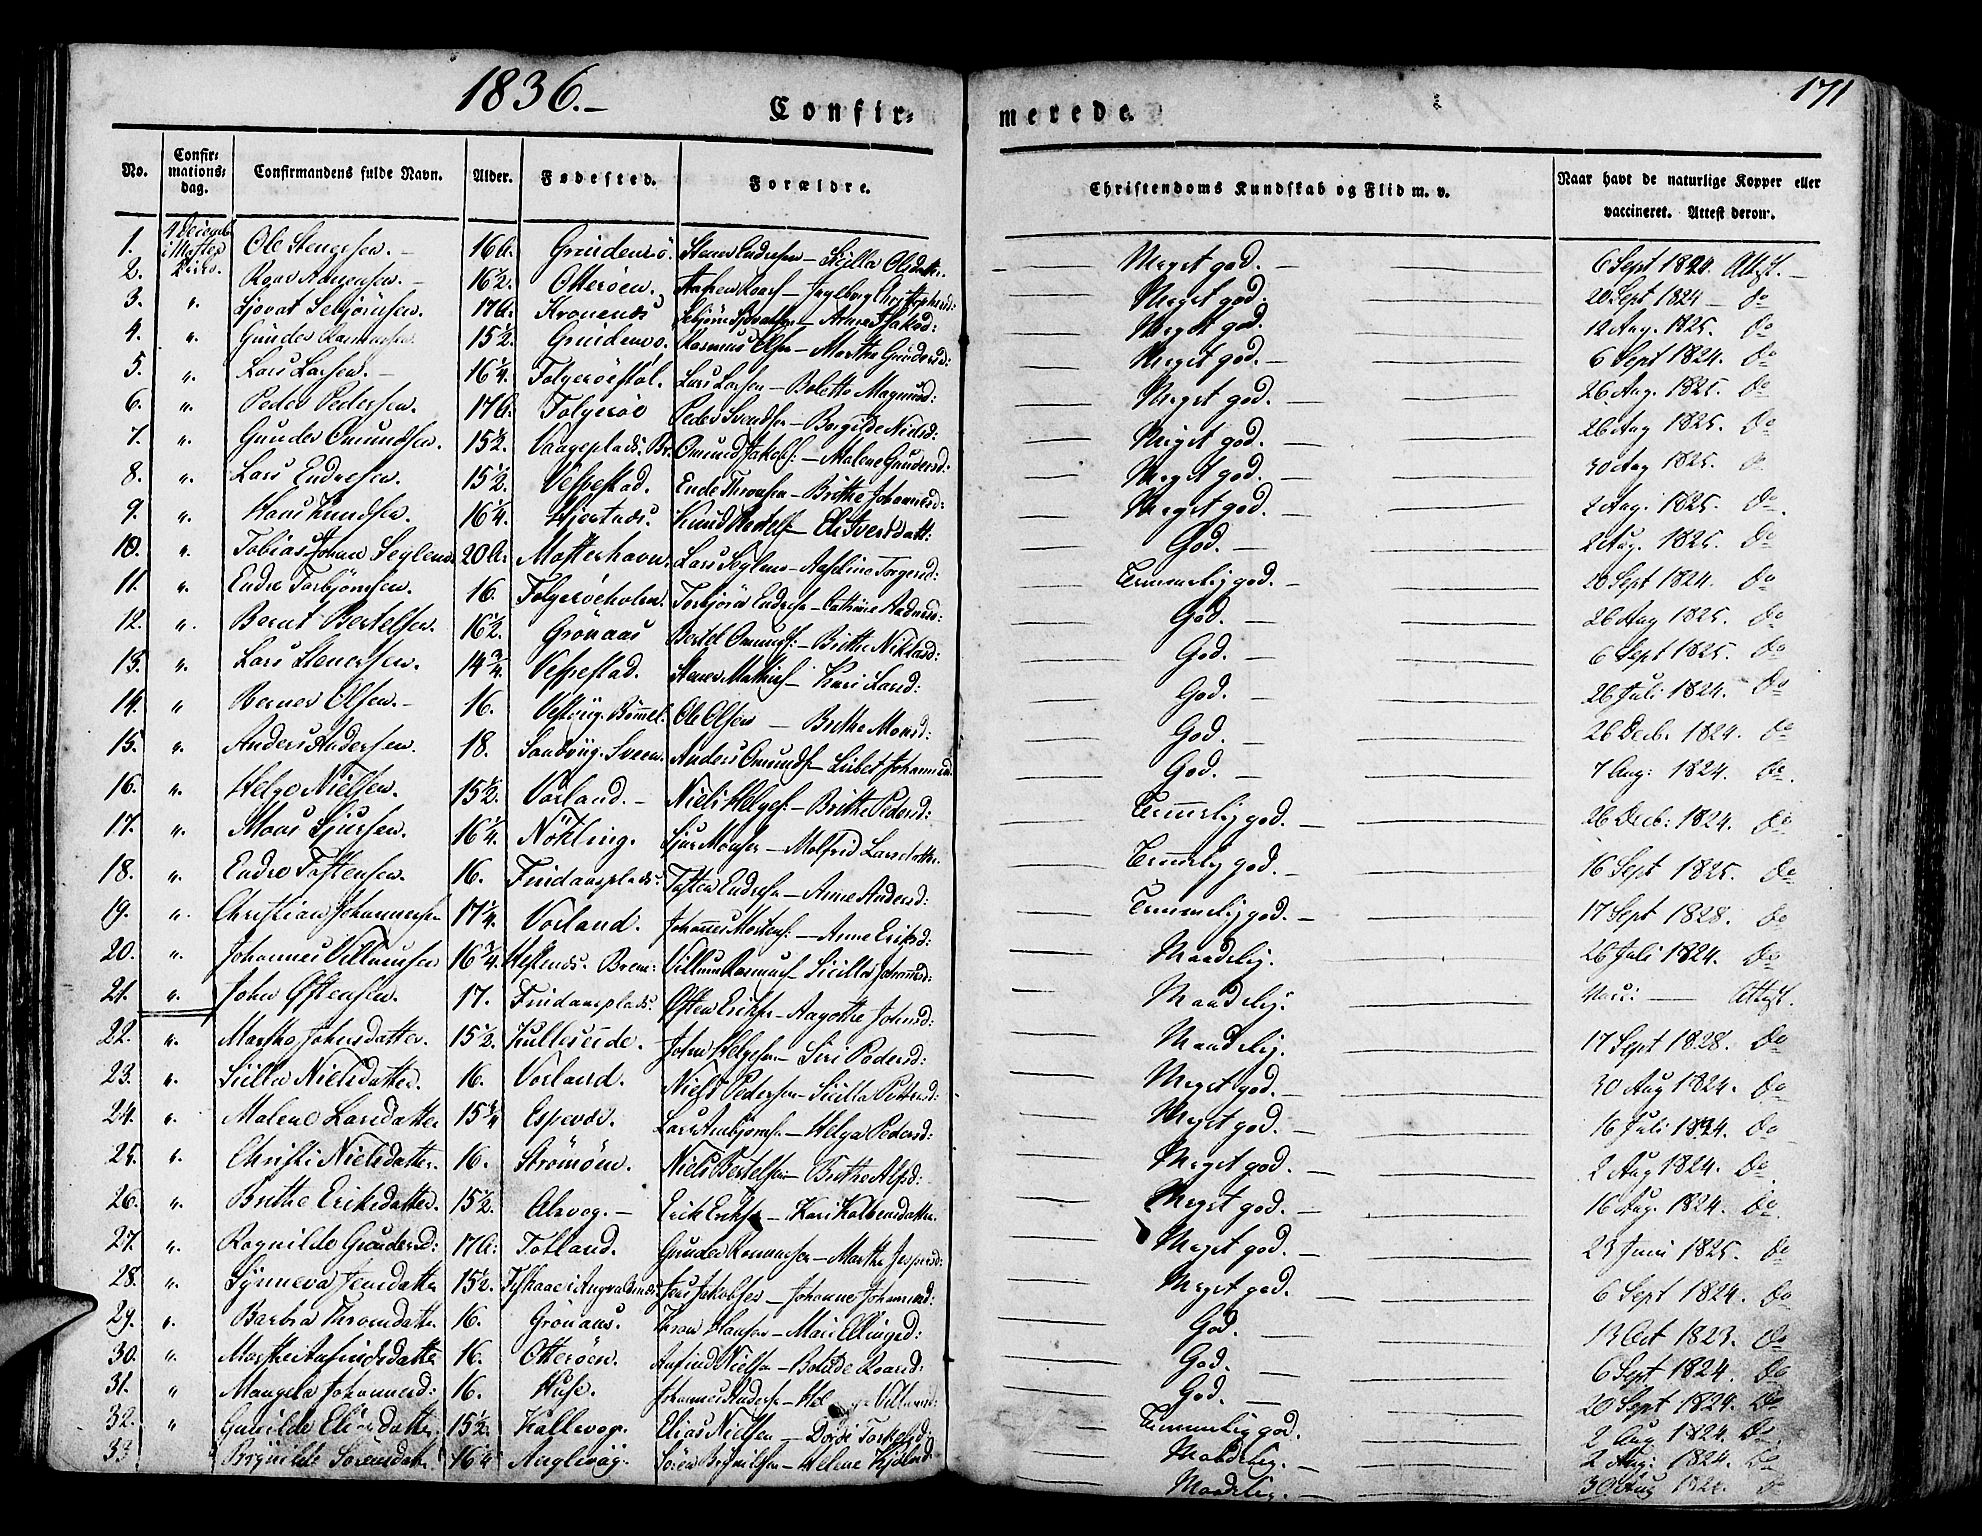 1836.-
171
Confir= merede.
No. Confir= mations= dag. Confirmandens fulde Navn. Alder. Fødested. Forældre. Christendoms Kundskab og Flid m. v. Naar havt de naturlige Kopper eller vaccineret. Attest derom.
1. i Moster Ole Stenersen. 16 A. Grindens Stener Endresen - Sicilla Olsdatter Meget god. 6 Sept 1824. Attest.
2. 16½ Otterøen. Ingeborg Meget god. 20 Sept 1824 - do
3. " Sjovat Sebjörnsen. 17 A. Kronenes Sebjörn - Anna Jakobd: Meget god. 12 Aug. 1825. do
4. " Gunder Rasmussen. 15½ Rasmus Olsen - Marthe Gundersd: Meget god. 6 Sept 1824. do
5. " Lars Larsen. 16¼ Folgeröestöl. Lars Larsen - Bolette Magnusd: Meget god. 26 Aug. 1825. do
6. " Peder Pedersen. 17 A. Folgeröe Peder Svendsen - Borgilde Nielsd: Meget god. 26 Aug 1825. do
7. " Gunder Omundsen. 15½ Vaageplads. Br. Omund Jakobs: - Malene Gundersd: Meget god. 30 Aug 1825. do
8. " Lars Endresen. 15½ Vespestad. Endre Thronsen - Brithe Johannesd: Meget god. 2 Aug. 1825. do
9. " Hans Knudsen. 16¼ Hjortnæs. Knud - Eli Iversdatt: God. 2 Aug. 1825. do
10. " Tobias Johan Seglem 20 A. Mosterhavn. Lars Seglem - Torgersd: Temmelig god. 20 Sept 1824. do
11. " Endre Torbjörnsen. 16. Folgeröeholm. Torbjörn Endresen - Cathrine God. 26 Aug 1825. do
12. " Bernt Bertelsen. 16½ Grönaas Bertel Omunds: - Brithe Niklasd: God. 6 Sept 1825. do
13. " Lars Stenersen. 14¾ Vespestad. Stener Mathias - Kari Larsd: God. 26 Juli 1824. do
14. " Berner Olsen. 16. Vestvug. Bömmel. Ole Olsen - Brithe Monsd: God. 26 Decb. 1824. do
15. " Anders Andersen. 18. Sandvug. Sveen. Anders Omunds - Lisbet Johannesd. God. 7 Aug: 1824. do
16. " Helge Nielsen. 15½ Vorland. Niels Helges: - Brithe Pedersd: Temmelig god. 26 Decb: 1824. do
17. " Mons Sjursen. 16¼ Nökling. Sjur Monsen - Malfrid Larsdatter Temmelig god. 16 Sept 1825. do
18. " Endre Tostensen. 16. Findaasplads: Tosten Endresen - Anne Andersd: Temmelig god. 17 Sept 1828. do
19. " Christian Johannesen 17¼ Vorland. Johannes Mortens: - Anne Eriksd: Maadelig. 26 Juli 1824. do
20. " Johannes Villumsen 16¾ Hestenæs. Brem: Villum Rasmus - Sicilla Johannesd: Maadelig. Vacc: Attest.
21. " John Östensen. 17. Findaasplads: Östen Eriksen - Aagotte Johnsd: Maadelig. 17 Sept 1828. do
22. " Martha Johnsdatter. 15½ Kulleseide. John Helgesen - Siri Pedersd: Meget god. 30 Aug 1824. do
23. " Sicilla Nielsdatter. 16. Vorland. Niels Pedersen - Sicilla Pettersd: Meget god. 16 Juli 1824. do
24. " Malene Larsdatter 15¼ Espevær. Lars Arnbjörns - Helga Pedersd: Meget god. 2 Aug 1824. do
25. " Christi Nielsdatter. 16. Strömöen. Niels Bertelsen - Brithe Alfsd: Meget god. 16 Aug. 1824. do
26. " Brithe Eriksdatter. 15½ Alsvog. Erik Eriksen - Kari Kolbensdatter. Meget god. 23 Juni 1825. do
27. " Ragnilde Gundersd: 17 A: Totland. Gunder Rasmussen - Marthe Jespersd: Meget god. 6 Sept 1824. do
28. " Synneva Jensdatter 15½ Jens Jakobsen - Johanne Johannesd: God. 13 Oct 1823. do
29. " Barbra Thronsdatter 16. Grönaas. Thron Hansen - Mari Ellingsd: God. 6 Sept 1824. do
30. " Marthe Anfindsdatter 16. Otterøen. Anfind Nielsen - Botilde Roarsd: God. 20 Sept 1824. do
31. " Mangela Johannesd: 16. Huse. Johannes Andersen - Temmelig god. 2 Aug 1824. do
32. " Gunilde Eliasdatter 15½ Kallevog. Elias Nielsen - Dordi Torkelsd: Maadelig. 2 Aug: 1824. do
33. Brynilde Sörensdatt 16¼ Sören Brynildsen - Helene Maadelig. 30 Aug do